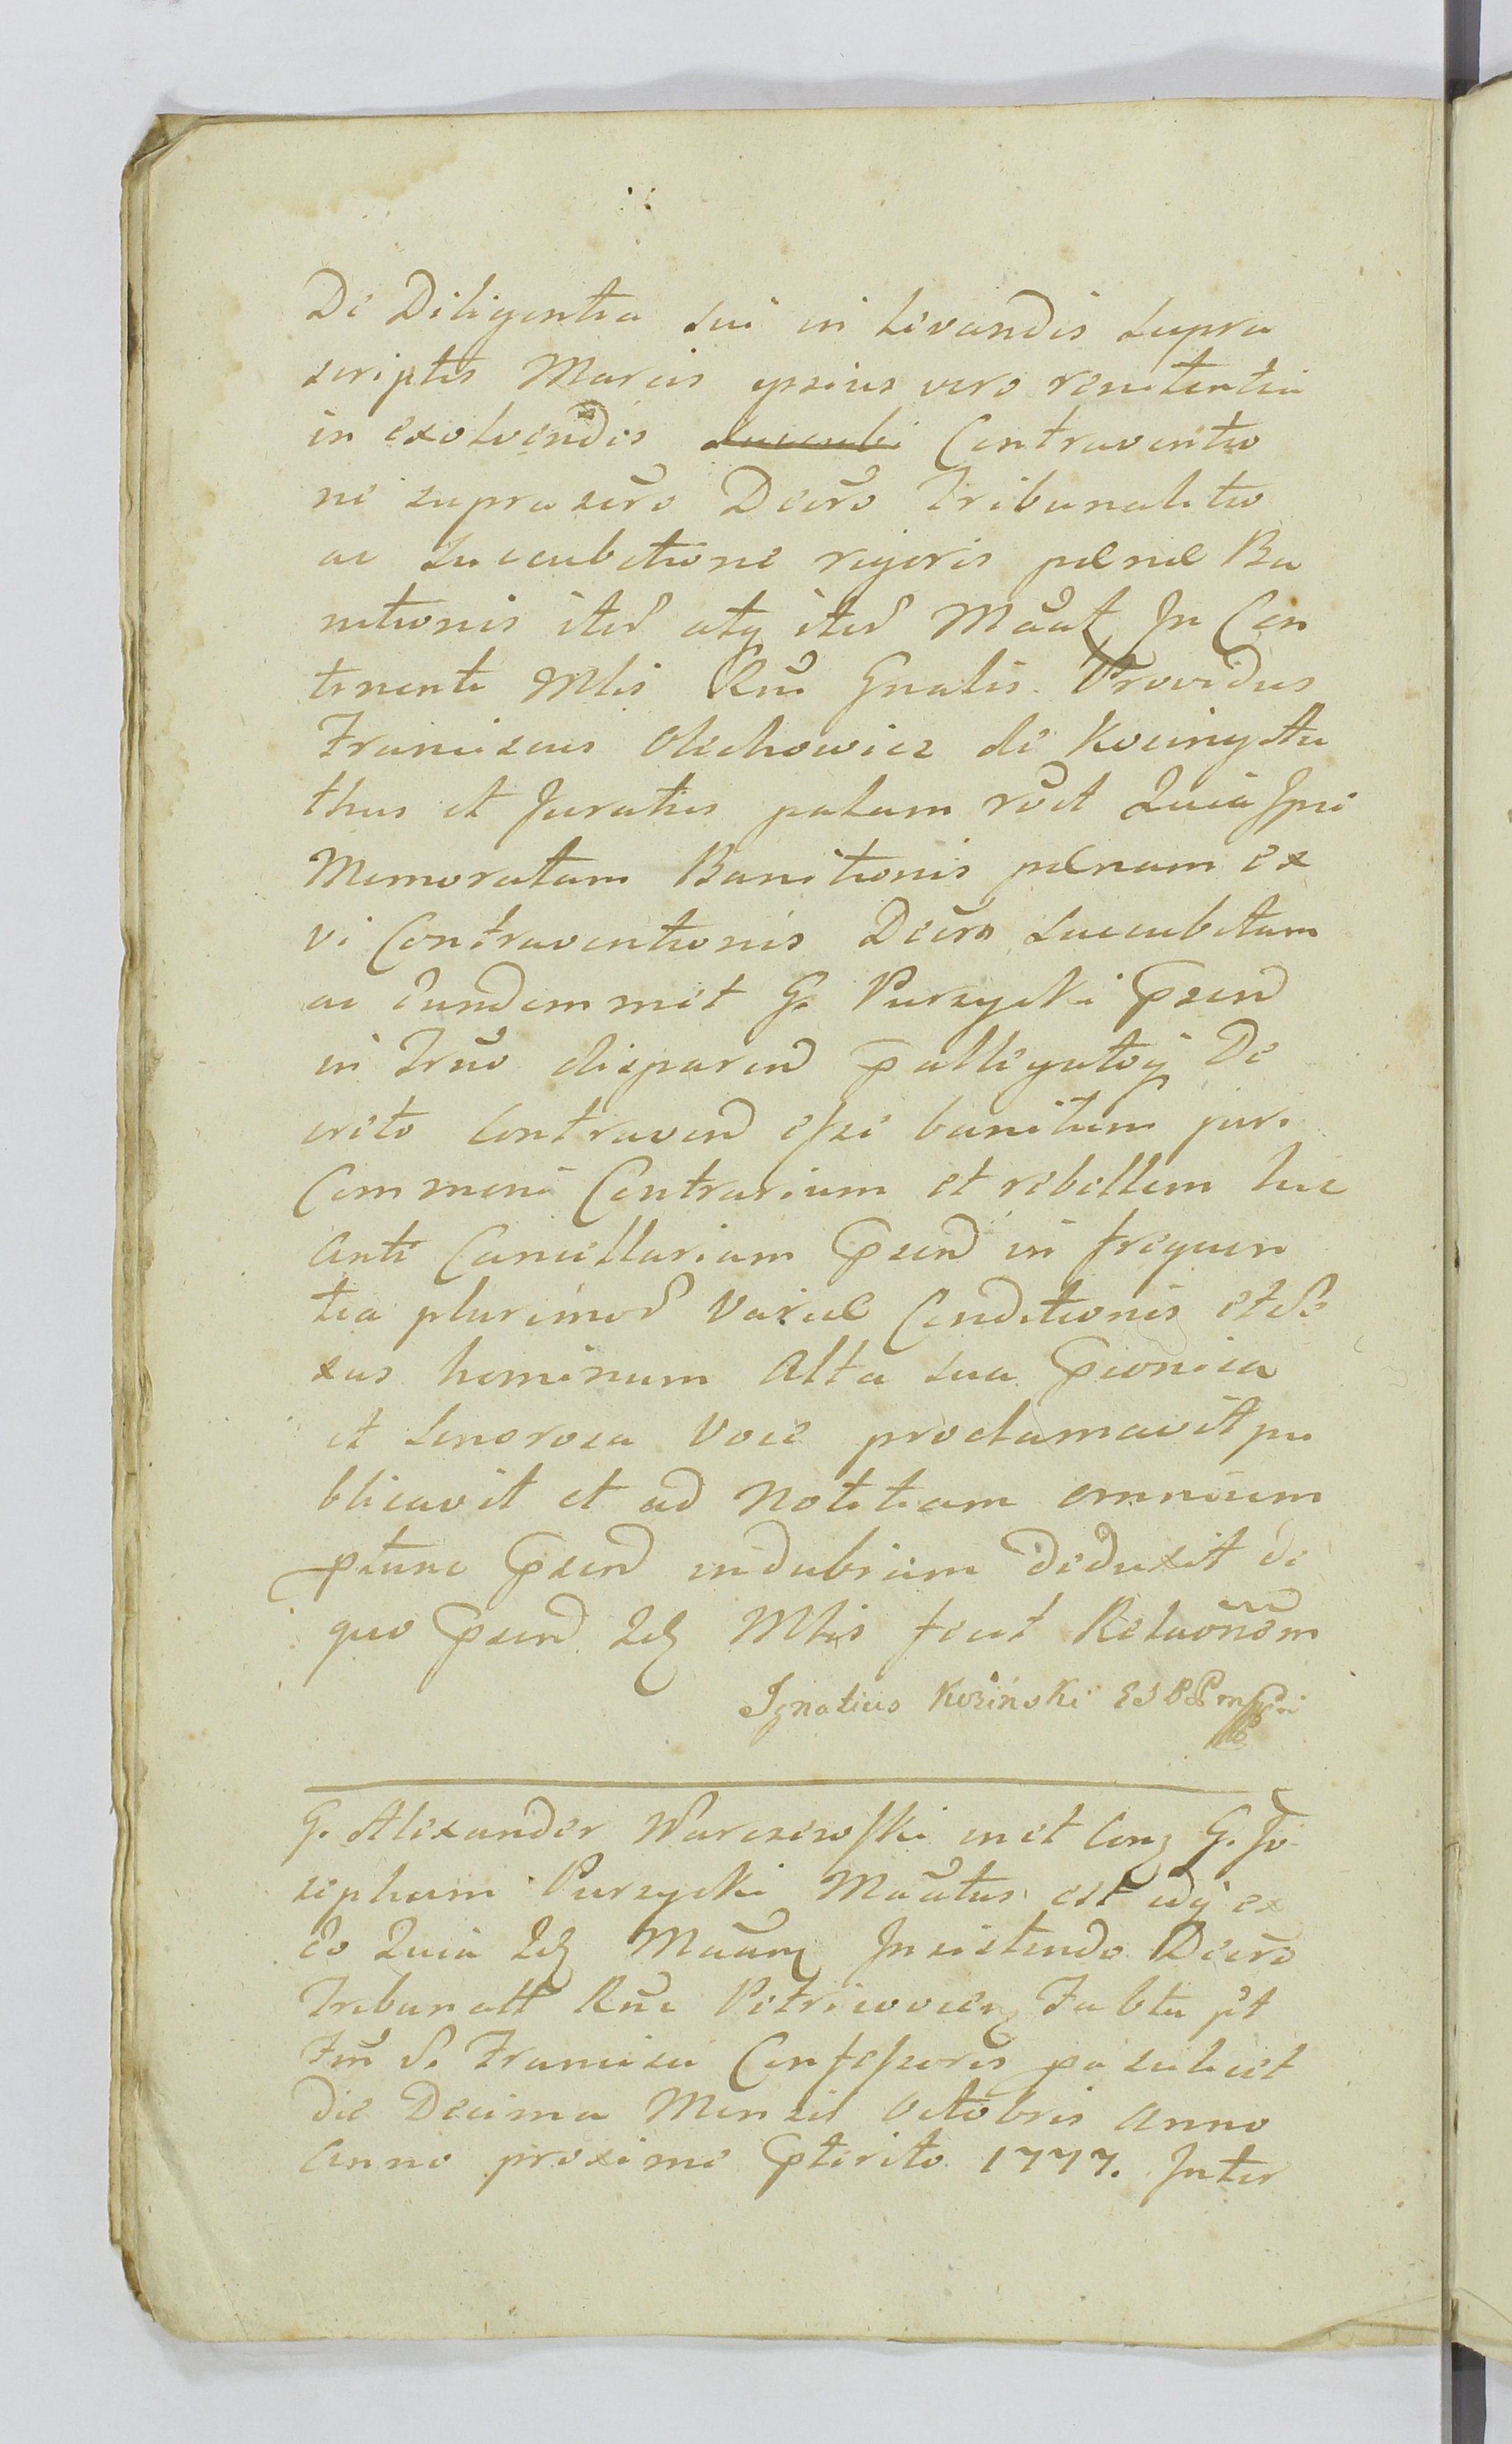 De Diligentia sui in levandis supra
scriptis Marcis ipsius vero renitentia
in exolvendis Contraventio
ne suprascro Decro Tribunalitio
ac succubitione rigoris pœnæ Ba
nitionis iterū atq iterū Mããt In Con
tinenti Mlis Rñi Gnalis Providus
Franciscus Olechowicz de
thus et Juratus palam rõit Quia Ipse
Memoratam Banitionis pœnam ex
vi Contraventionis Decro succubitam
ac eundemmet G. Purzycki Psend
in Trño disparend pallegatoq De
creto Contravend esse banitum juri
Communi Contrarium et rebellem hic
ante Cancellariam Psend in frequen
tia plurimor Variæ Conditionis et Se
xus hominum Alta sua Pconica
et Sonorosa Voce proclamavit pu
blicavit et ad Notitiam omnium
ptunc Psend indubiam Deduxit de
quo Psend Idq Mlis fecit Relãõnẽm
Ignatius Koźiński
G. Alexander Warszewski in et Conq G. Jo
sephum Purzycki Mããtus est idq ex
eo Quia Idq Mããnq Insistendo Decro
Tribunali Rñi Petricovienq Fabta pt
Fm S. Francisci Confessoris pa scilicet
Die Decima Mensis Octobris Anno
Anno proxime Pterito 1777. Inter